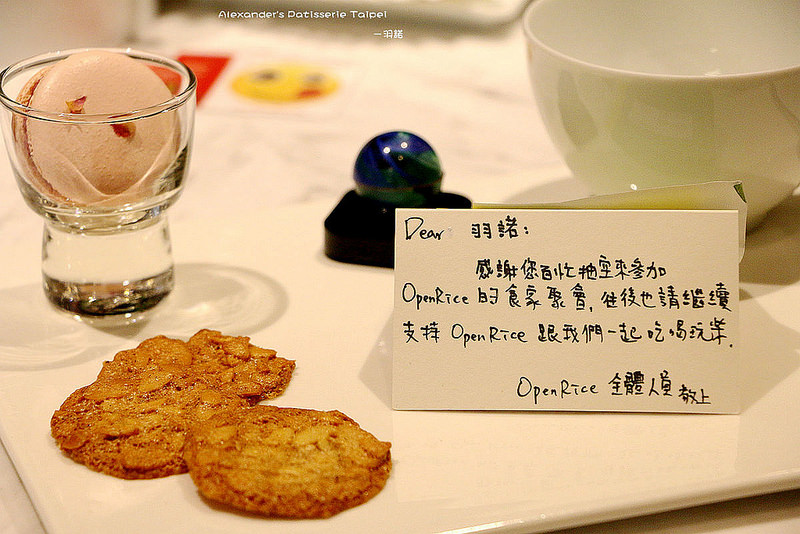 Alexander's Patisserie Taipei
一羽諾
Dear 羽諾：
感謝您百忙抽空來參加
OpenRice 的食家聚會，往後也請繼續
支持 OpenRice 跟我們一起吃喝玩樂。
OpenRice 全體人員 敬上